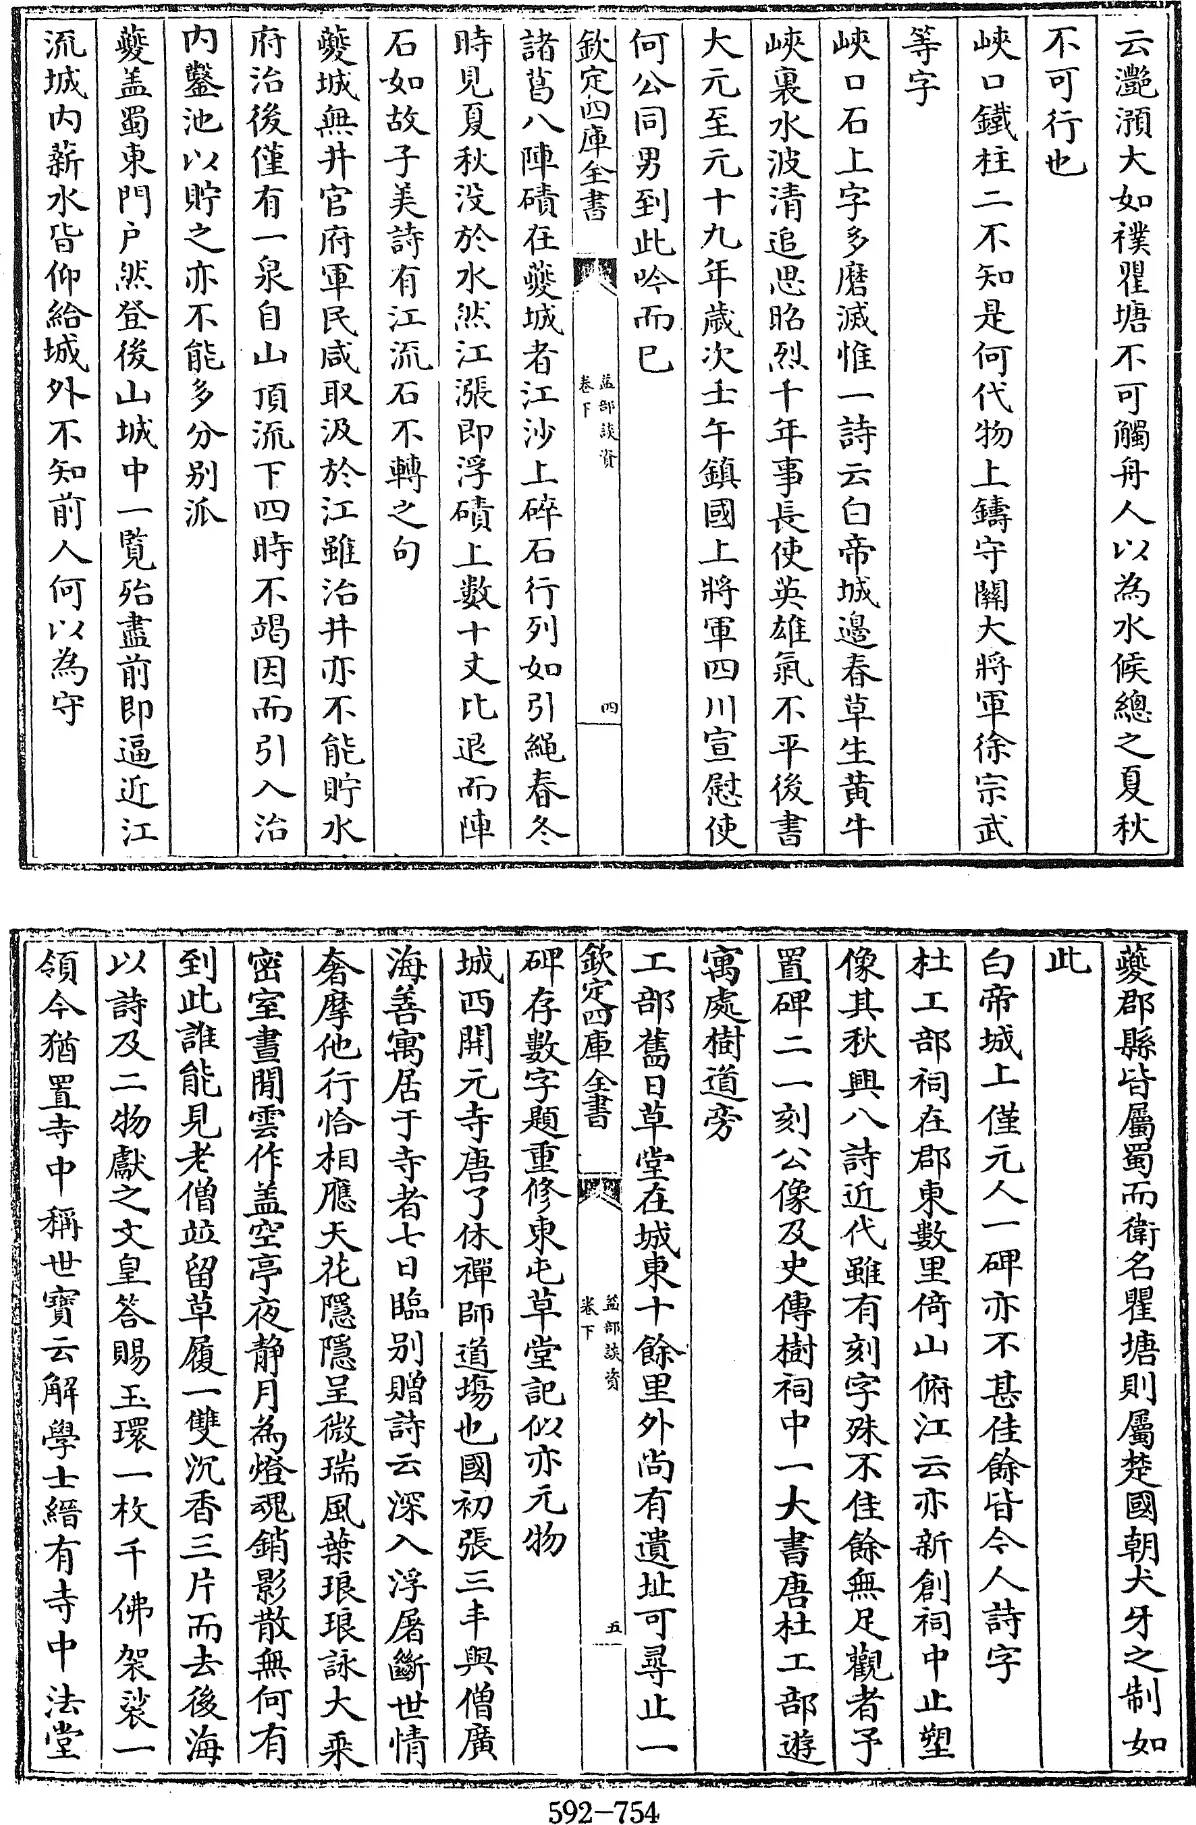 云灔澦大如襆瞿塘不可觸舟人以為水候總之夏秋
不可行也
峽口鐵柱二不知是何代物上鑄守關大將軍徐宗武
等字
峽口石上字多磨滅惟一詩云白帝城邊春草生黄牛
峽裏水波清追思昭烈千年事長使英雄氣不平後書
大元至元十九年歲次壬午鎮國上將軍四川宣慰使
何公同男到此吟而已
欽定四庫全書
益部談資
卷下
四
諸葛八陣磧在夔城者江沙上碎石行列如引繩春冬
時見夏秋没於水然江漲即浮磧上數十丈比退而陣
石如故子美詩有江流石不轉之句
夔城無井官府軍民咸取汲於江雖治井亦不能貯水
府治後僅有一泉自山頂流下四時不竭因而引入治
内鑿池以貯之亦不能多分别派
夔盖蜀東門户然登後山城中一覧殆盡前即逼近江
流城内薪水皆仰給城外不知前人何以為守
夔郡縣皆屬蜀而衛名瞿塘則屬楚國朝犬牙之制如
此
白帝城上僅元人一碑亦不甚佳餘皆今人詩字
杜工部祠在郡東數里倚山俯江云亦新創祠中止塑
像其秋興八詩近代雖有刻字殊不佳餘無足觀者予
置碑二一刻公像及史傳樹祠中一大書唐杜工部遊
寓處樹道旁
工部舊日草堂在城東十餘里外尚有遺址可尋止一
欽定四庫全書
益部談資
卷下
五
碑存數字題重修東屯草堂記似亦元物
城西開元寺唐了休禪師道塲也國初張三丰與僧廣
海善寓居于寺者七日臨别贈詩云深入浮屠斷世情
奢摩他行恰相應天花隱隱呈微瑞風葉琅琅詠大乘
密室晝閒雲作盖空亭夜静月為燈魂銷影散無何有
到此誰能見老僧竝留草履一雙沉香三片而去後海
以詩及二物獻之文皇答賜玉環一枚千佛袈裟一
領今猶置寺中稱世寶云解學士縉有寺中法堂
592-754